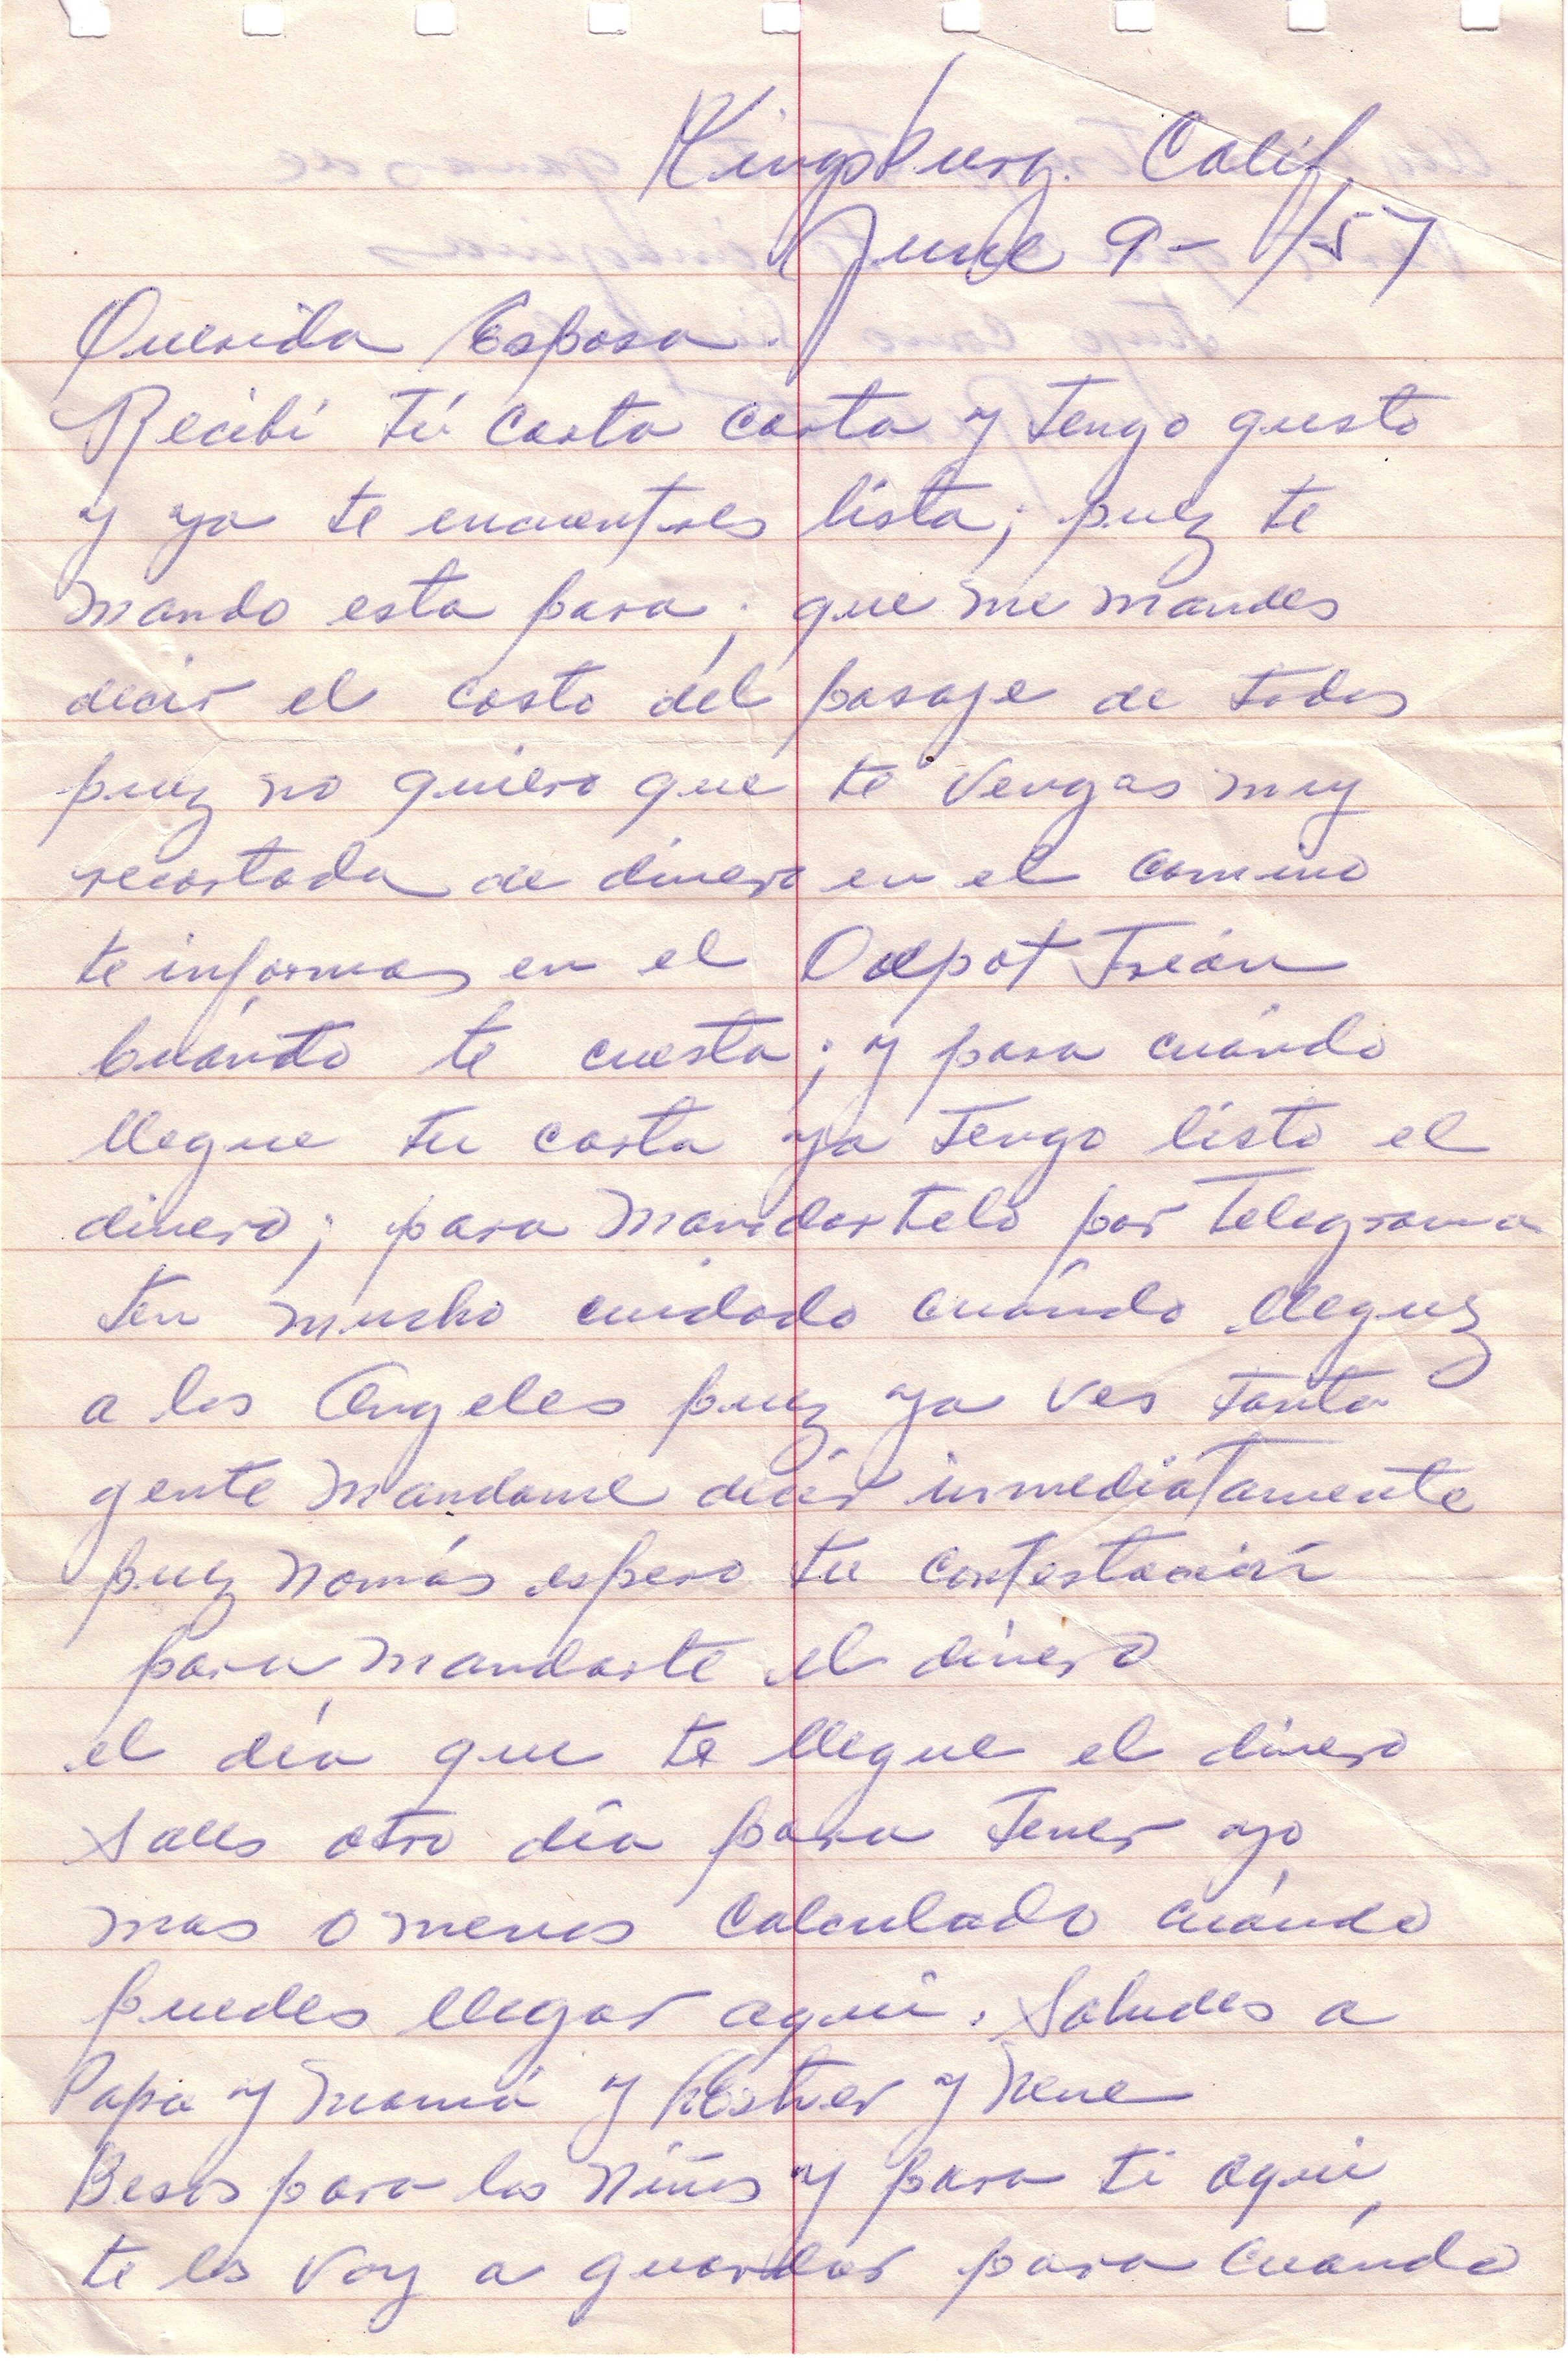 Kingsburg. Calif.
June 9-/57
Querida Esposa.
Recibí tú carta carta y tengo gusto
y ya te encuentres lista; puez te
mando esta para; que me mandes
decir el costo del pasaje de todos
puez no quiero que te vengas muy
recortada de dinero en el camino
te informas en el Deepot Treán
Cuánto te cuesta; y para cuándo
llegue tu carta ya tengo listo el
dinero; para mandartelo por Telegrama
ten mucho cuidado cuándo lleguez
a los Angeles puez ya ves tanta
gente mandame decir inmediatamente
puez nomás espero tu contestación
para mandarte el dinero
el día que te llegue el dinero
sales otro día para tener yo
mas o menos calculado cuándo
puedes llegar aquí. Saludes a
Papa y Mamá y Esther y Nene
Besos para los Niños y para ti aquí
te los voy a guardar para cuándo